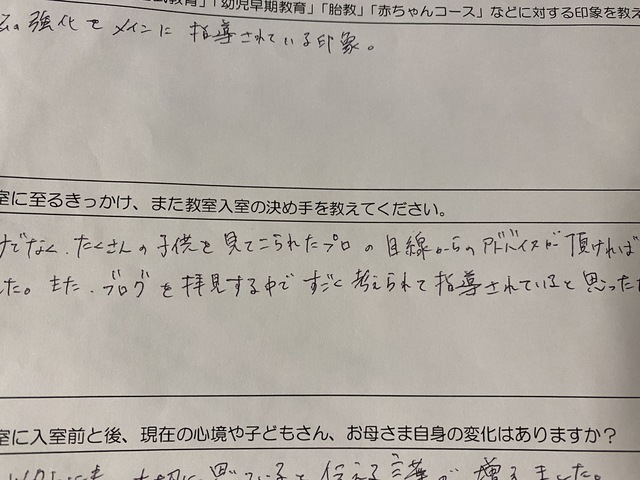 式教育」「幼児早期教育」「胎教」「赤ちゃんコース」などに対する印象を教え
の強化をメインに指導されている印象。
室に至るきっかけ、また教室入室の決め手を教えてください。
けでなく、たくさんの子供を見てこられたプロの目線からのアドバイスが頂ければ
した。また、ブログを拝見する中ですごく考えられて指導されていると思った
室に入室前と後、現在の心境や子どもさん、お母さま自身の変化はありますか？
大切に思っていると伝える言葉が増えました。